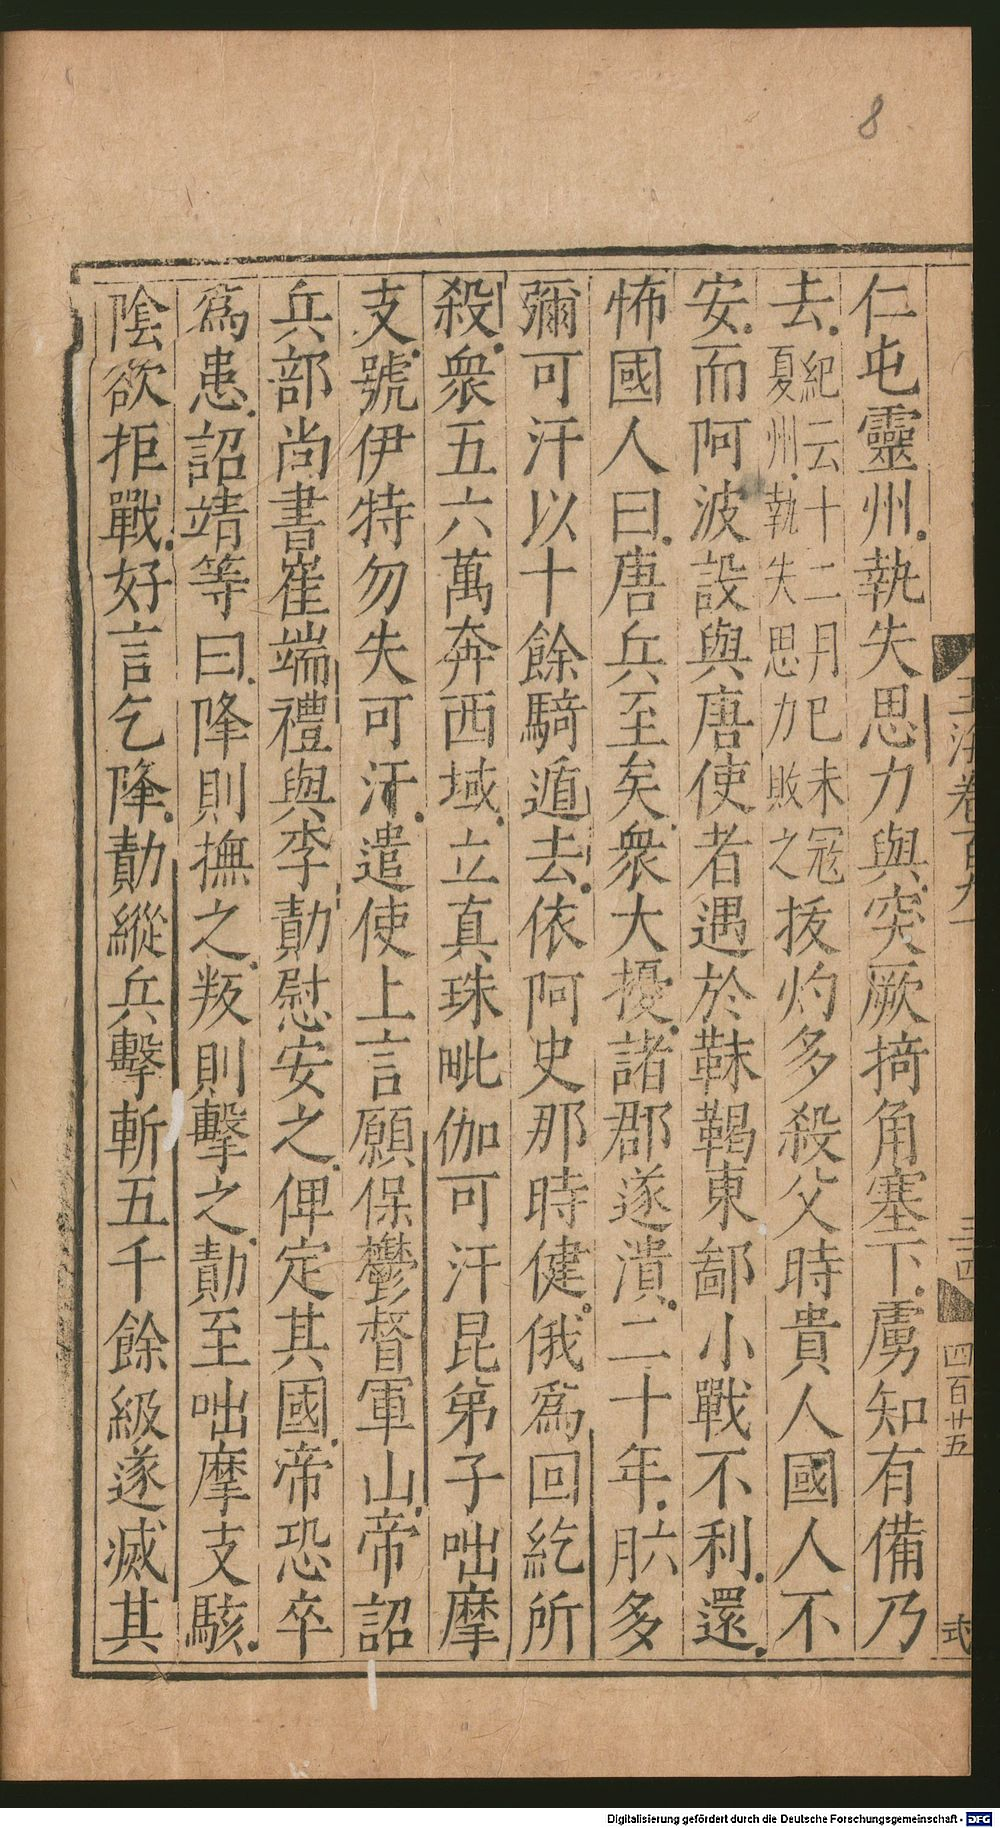 8
玉海卷百九一
三四
四百廿五
式
仁屯靈州執失思力與突厥掎角塞下虜知有備乃
去紀云十二月己未冦夏州執失思力敗之拔灼多殺父時貴人國人不
安而阿波設與唐使者遇於靺鞨東鄙小戰不利還
怖國人曰唐兵至矣衆大擾諸郡遂潰二十年六月多
彌可汗以十餘騎遁去依阿史那時健俄爲回紇所
殺衆五六萬奔西域立真珠毗伽可汗昆弟子咄摩
支號伊特勿失可汗遣使上言願保鬱督軍山帝詔
兵部尚書崔端禮與李勣慰安之俾定其國帝恐卒
爲患詔靖等曰降則撫之叛則擊之勣至咄摩支駭
陰欲拒戰好言乞降勣縱兵擊斬五千餘級遂滅其
Digitalisierung gefördert durch die Deutsche Forschungsgemeinschaft - DFG